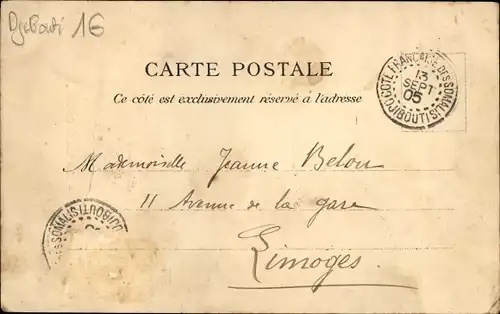 Djibouti 16
CÔTE FRANÇAISE DES SOMALIS
13
SEPT
05
DJIBOUTI
CARTE POSTALE
Ce côté est exclusivement réservé à l'adresse
Mademoiselle Jeanne Belou
11 Avenue de la gare
Limoges.
DES SOMALIS
DJIBOUTI